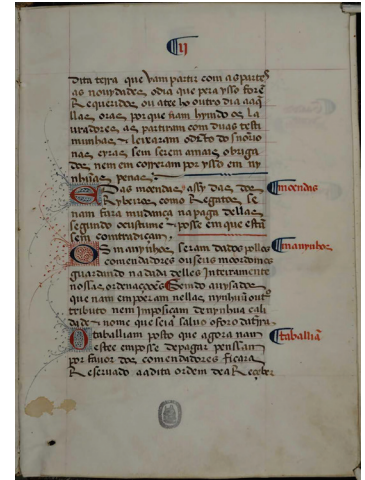 ij
dita terra que vam partir com as partes
as novydades, odia que pera ysso forẽ
Requerydos, ou atee ho outro dia aaq̃l
llas oras, porque nam hyndo os la
uradores, as partiram com duas testi
munhas, e leixaram odr̃to do snorio
nas eyras, sem serem a mais obriga
dos, nem emcorreram por ysso em ny
nhũa penas.
E das moendas, assy das dos moendas
Rybeiros como Regatos, se
nam fara mudança na paga dellas
segundo ocustume e posse em que estã
sem contradicam.
Os manynhos, seram dados pellos manynhos
comendadores ou seus moordomos
guardando na dada delles Inteiramente
nossas ordenações Sendo avysados
que nam emponham nellas nynhuũ out
tributo nem Imposicam de nynhũa cali
dade e nome que seia salvo oforo da tr̃a
O taballiam posto que agora nam taballiã
este em posse de pagar penssam
por favor dos comendadores ficara
Reservado aadita ordem dea Receber